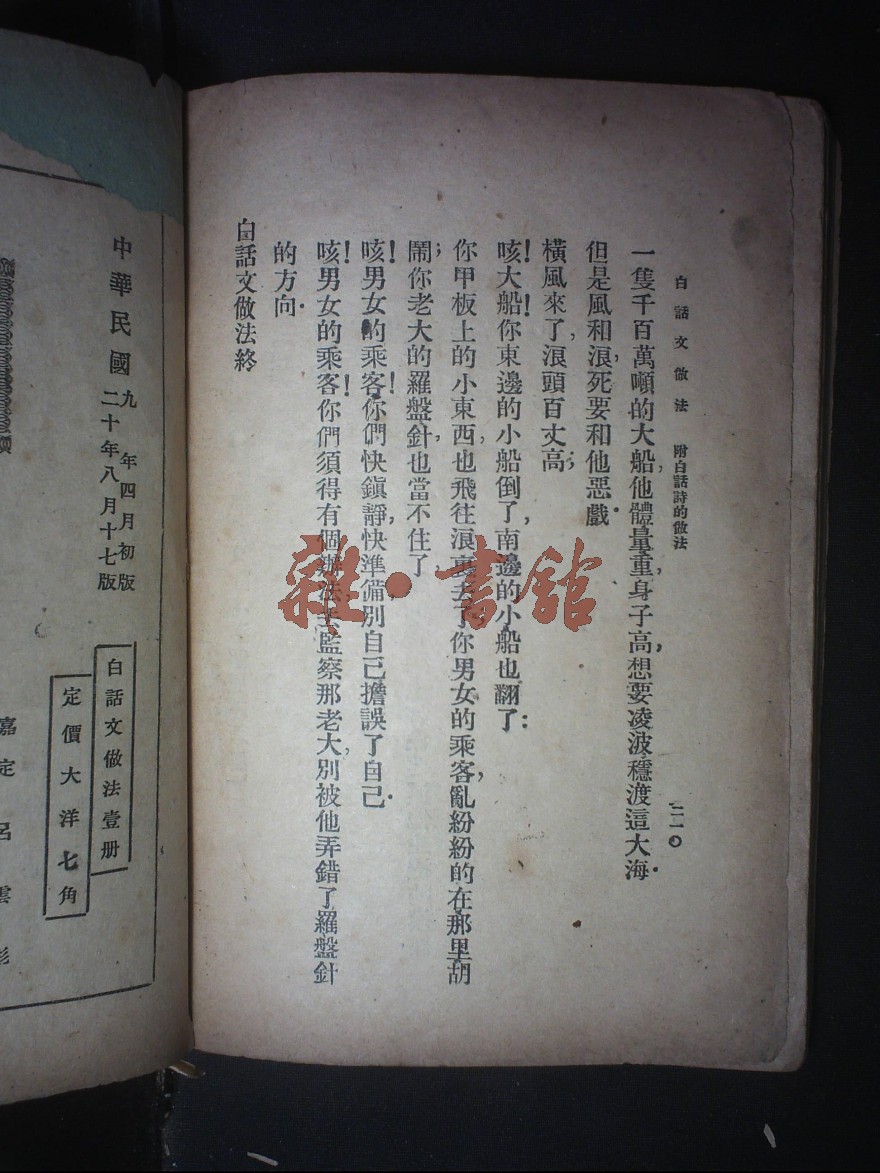 白話文做法　附白話詩的做法　二一〇
一隻千百萬噸的大船，他體量重，身子高，想要凌波穩渡這大海．
但是風和浪，死要和他惡戲．
橫風來了，浪頭百丈高；
咳！大船！你東邊的小船倒了，南邊的小船也翻了：
你甲板上的小東西，也飛往浪裏去了，你男女的乘客，亂紛紛的在那里胡
鬧；你老大的羅盤針，也當不住了．
咳！男女的乘客！你們快鎮靜，快準備，別自己擔誤了自己．
咳！男女的乘客！你們須得有個辦法，去監察那老大，別被他弄錯了羅盤針
的方向．
白話文做法終
雜·書館
中華民國九年四月初版
二十年八月十七版
白話文做法壹册
定價大洋七角
嘉定呂雲彪